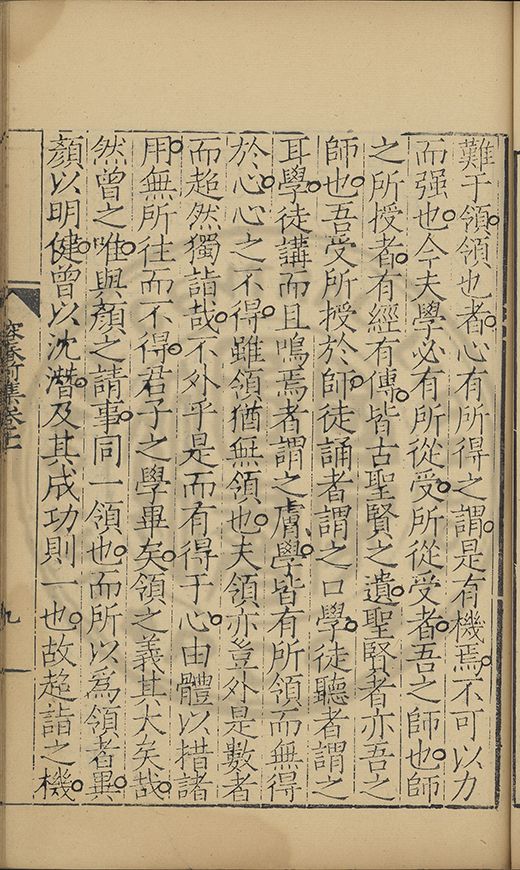 難于領領也者心有所得之謂是有機焉不可以力
而强也今夫學必有所從受所從受者吾之師也師
之所授者有經有傳皆古聖賢之遺聖賢者亦吾之
師也吾受所授於師徒誦者謂之口學徒聽者謂之
耳學徒講而且鳴焉者謂之膚學皆有所領而無得
於心心之不得雖領猶無領也夫領亦豈外是數者
而超然獨詣哉不外乎是而有得于心由體以措諸
用無所往而不得君子之學畢矣領之義其大矣哉
然曾之唯與顏之請事同一領也而所以為領者異
顏以明健曾以沈潛及其成功則一也故超詣之機
容春
集卷
九